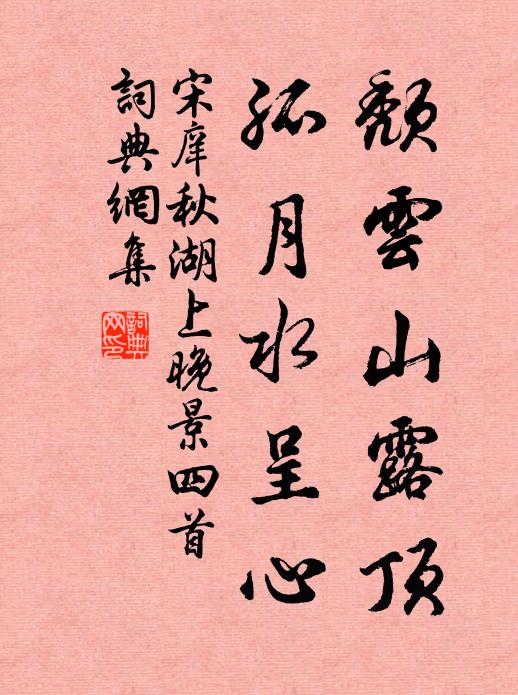 頹雲山露頂
孤月水呈心
宋庠秋湖上晚景四首
詞典網集
詞典網印